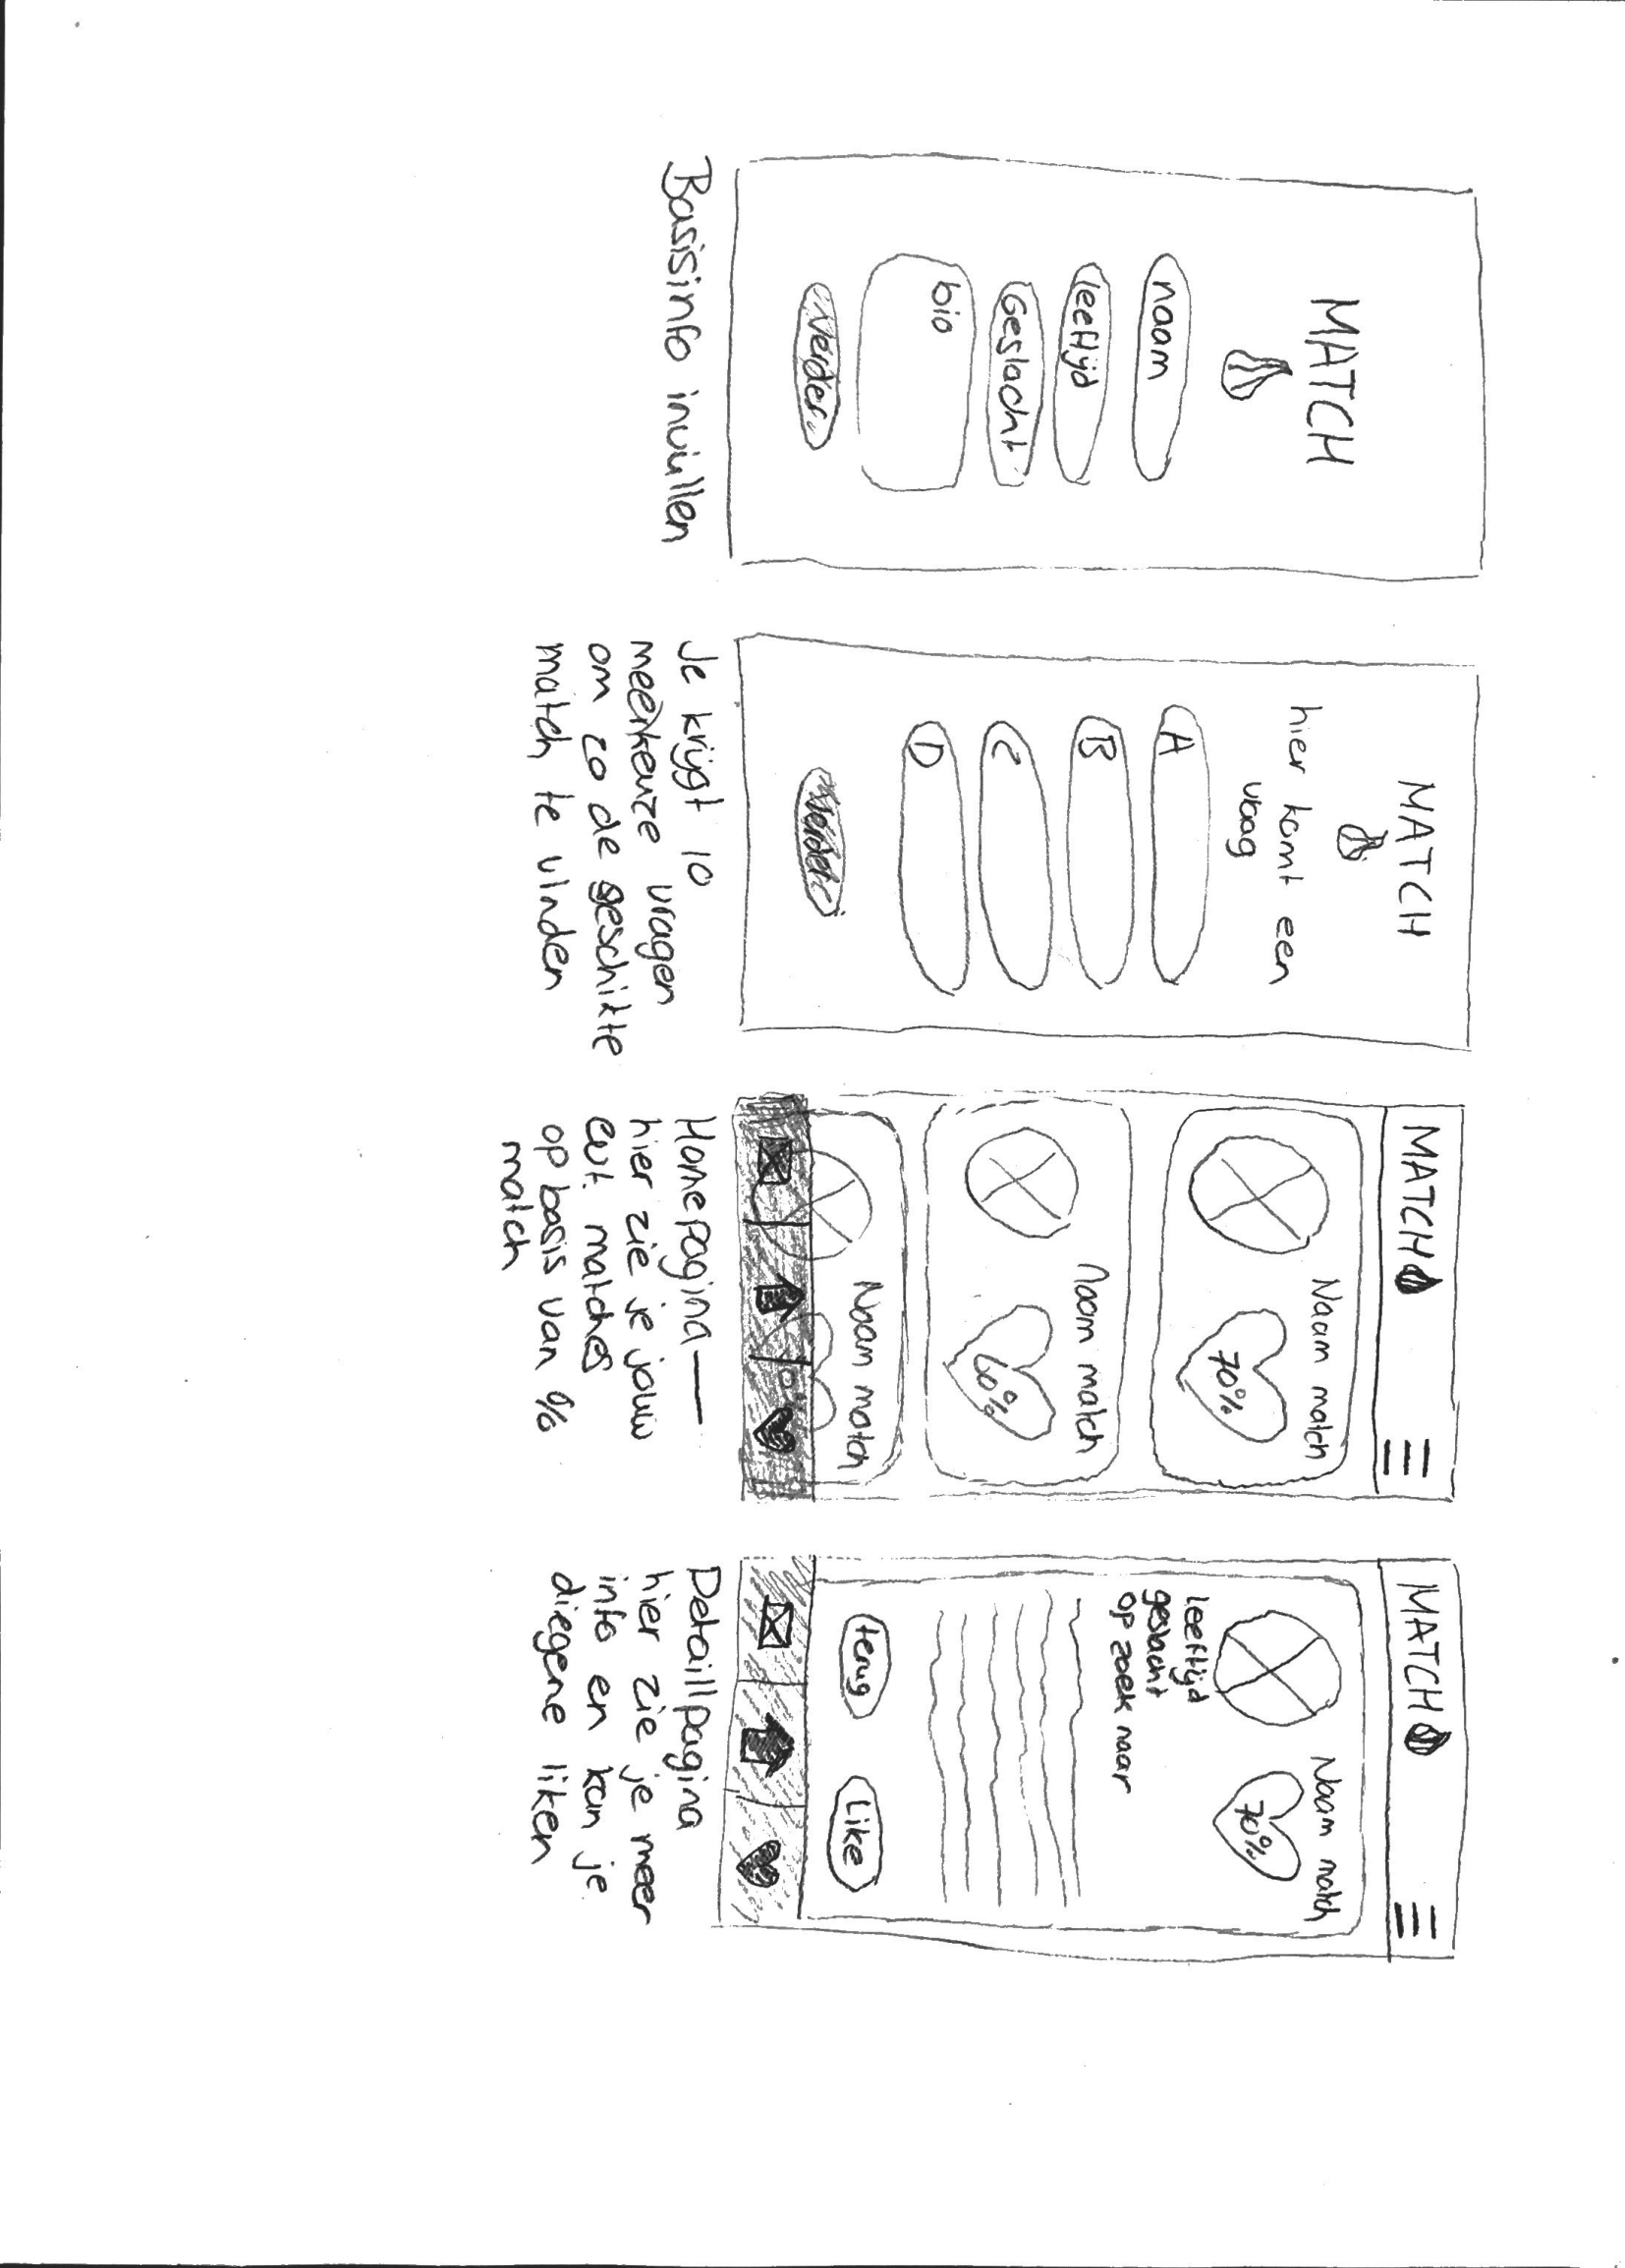 MATCH
naam
leeftijd
Geslacht
bio
Verder
Basisinfo invullen
MATCH
hier komt een
vraag
A
B
C
D
Verder
Je krijgt 10
meerkeuze vragen
om zo de geschikte
match te vinden
MATCH
Naam match
70%
Naam match
60%
Naam match
Homepagina
hier zie je jouw
evt. matches
op basis van %
match
MATCH
Naam match
70%
leeftijd
geslacht
op zoek naar
terug
Like
Detaillpagina
hier zie je meer
info en kan je
diegene liken